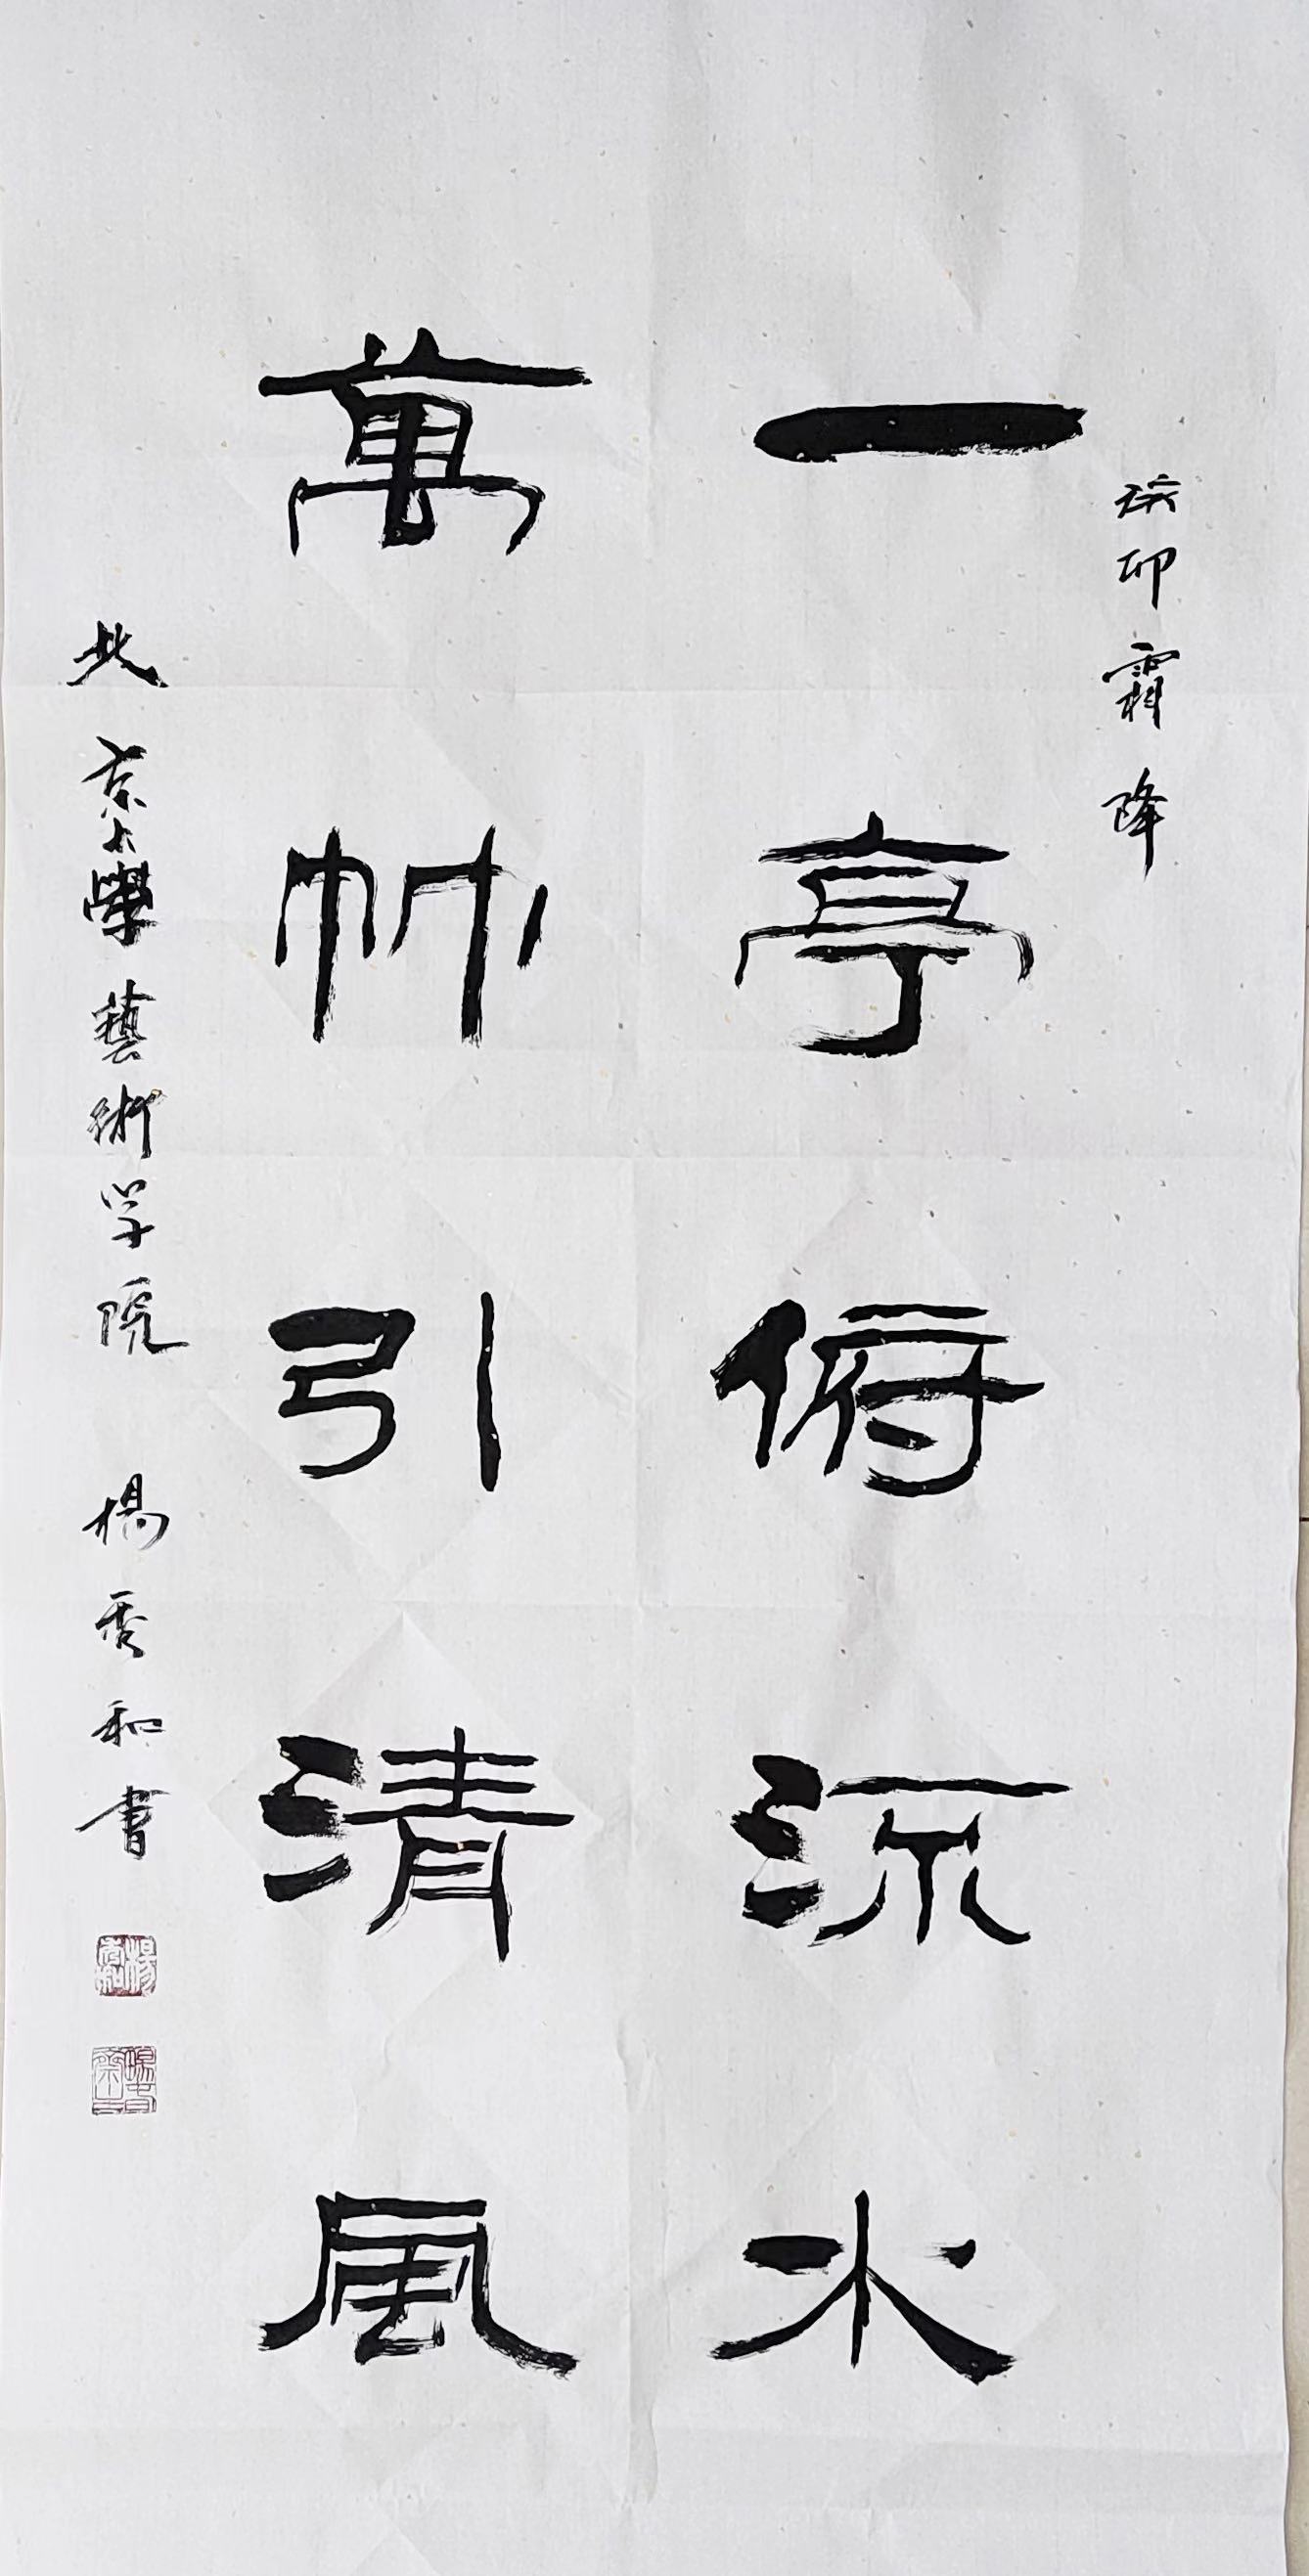 癸卯霜降
一亭俯流水
萬竹引清風
北京大學藝術学院 楊秀和書